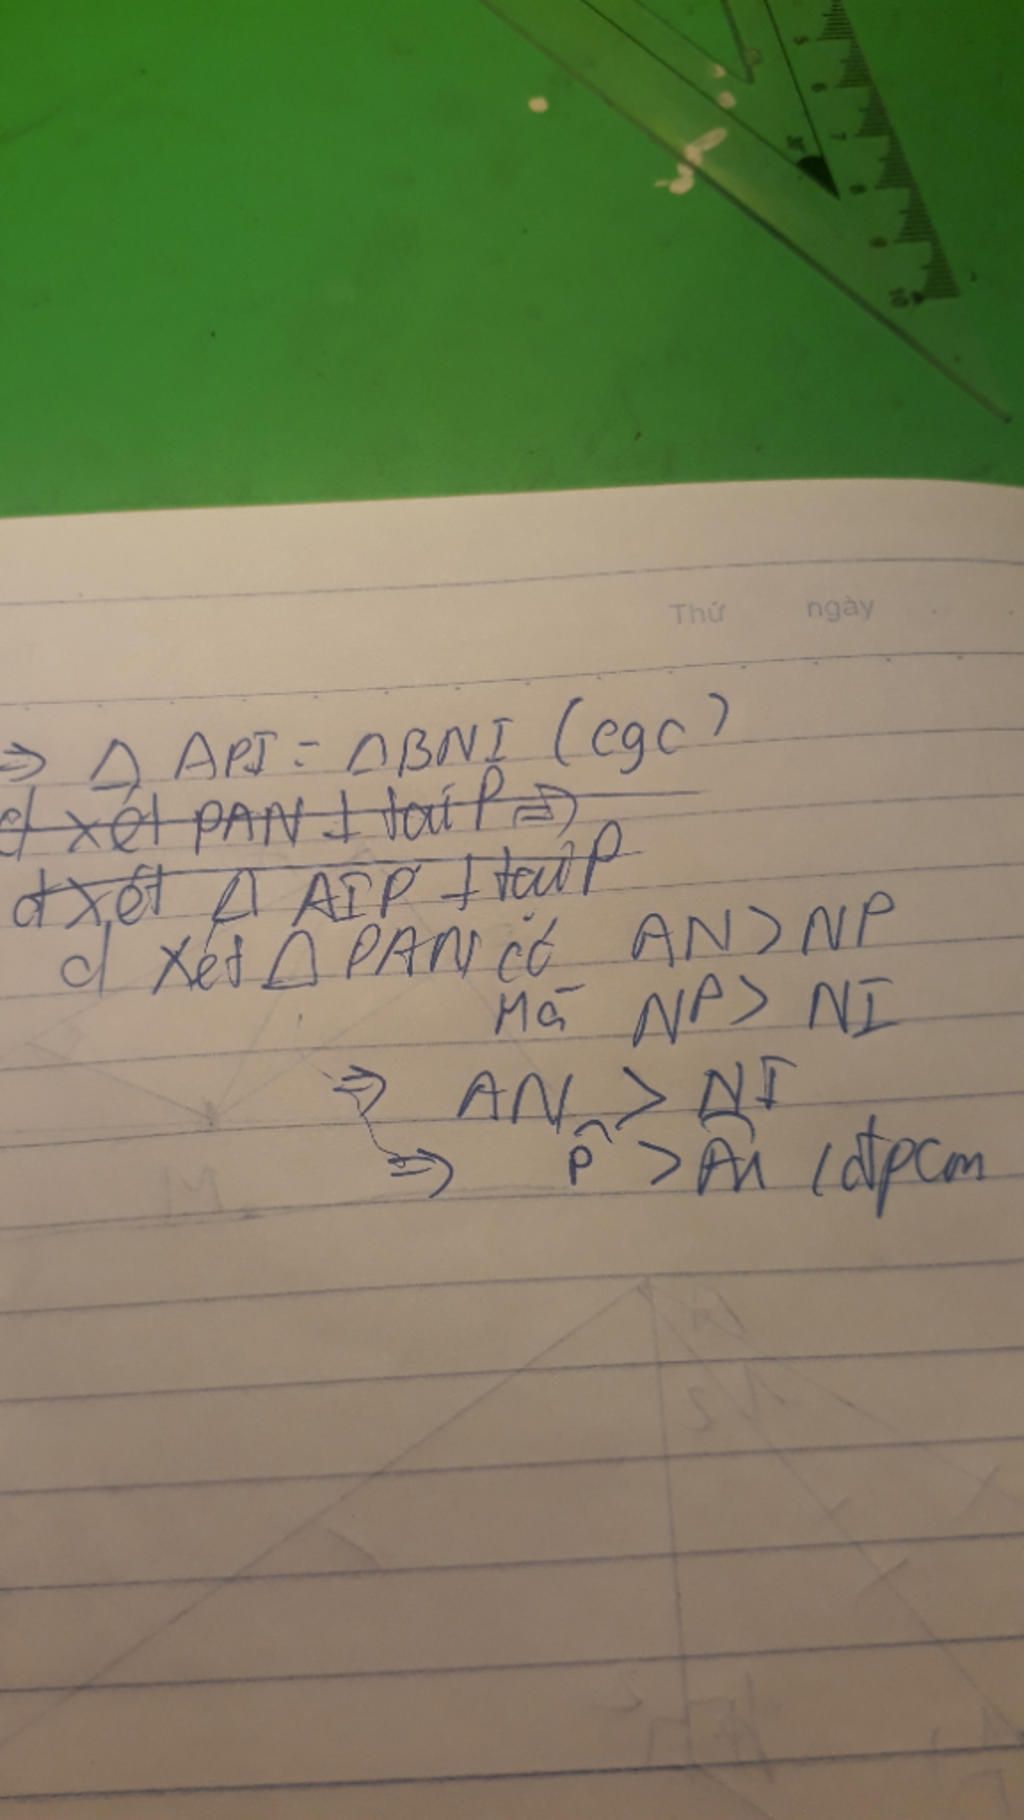 5
6
7
8
9
10
Thứ ngày
=> Δ API = ΔBNI (cgc)
d xét PAN ⊥ tại P =>
d xét Δ AIP ⊥ tại P
d Xét Δ PAN có AN > NP
Mà NP > NI
=> AN > NI
=> P̂ > (đpcm
M